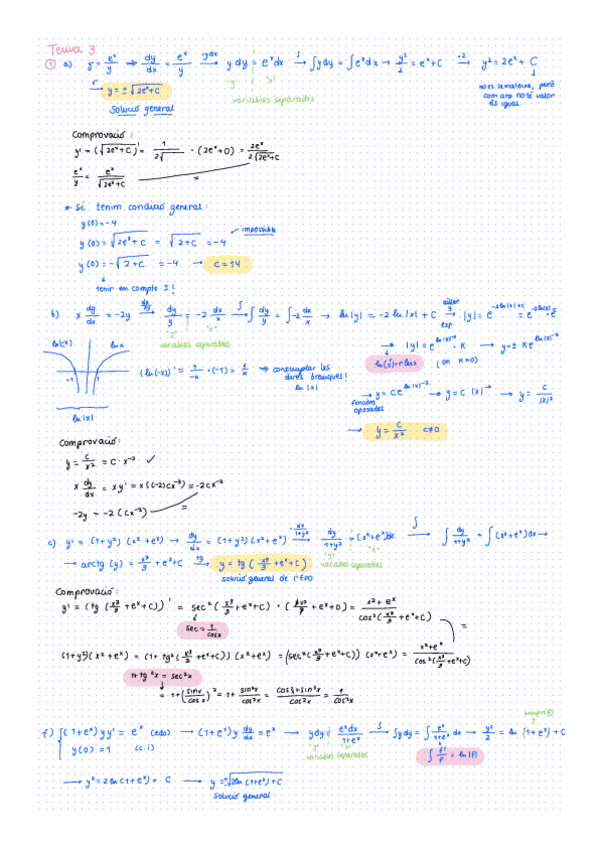 Tema 3
① a) y' = e^x/y → dy/dx = e^x/y →(·ydx) y dy = e^x dx →(∫) ∫y dy = ∫e^x dx → y²/2 = e^x + C →(·2) y² = 2e^x + C
"y" "x" variables separades
no es la mateixa, però com ara no té valor és igual
→(√) y = ± √(2e^x + C)
Solució general
Comprovació:
y' = (√(2e^x + C))' = 1/(2√ ) · (2e^x + 0) = 2e^x/(2√(2e^x + C))
e^x/y = e^x/√(2e^x + C) =
* Si tenim condició general:
y(0) = -4
y(0) = √(2e^0 + C) = √(2 + C) = -4 impossible
y(0) = -√(2 + C) = -4 → C = 14
tenir en compte I!
b) x dy/dx = -2y → dy/y = -2 dx/x →(∫) ∫dy/y = ∫-2 dx/x → ln|y| = -2 ln|x| + C →(exp) |y| = e^(-2ln|x| + C) = e^(-2ln|x|) · e^C
"y" "x" variables separades
→ |y| = e^(ln|x|^-2) · K → y = ± K e^(ln|x|^-2)
ln(-x) ln x
-1 1
(ln(-x))' = 1/-x · (-1) = 1/x → contemplar les dues branques! ln|x|
ln|x|
(on K>0)
→ y = C e^(ln|x|^-2) → y = C |x|^-2 → y = C/|x|²
→ y = C/x² C≠0
Comprovació:
y = C/x² = C · x^-2 ✓
x dy/dx = xy' = x((-2)Cx^-3) = -2Cx^-2
-2y = -2(Cx^-2) =
c) y' = (1+y²)(x²+e^x) → dy/dx = (1+y²)(x²+e^x) →(· dx/(1+y²)) dy/(1+y²) = (x²+e^x)dx →(∫) ∫dy/(1+y²) = ∫(x²+e^x)dx →
"y" "x" variables separades
→ arctg(y) = x³/3 + e^x + C →(tg) y = tg(x³/3 + e^x + C)
solució general de l'EDO
Comprovació:
y' = (tg(x³/3 + e^x + C))' = sec²(x³/3 + e^x + C) · (3x²/3 + e^x + 0) = (x² + e^x)/cos²(x³/3 + e^x + C)
sec = 1/cosx
=
(1+y²)(x²+e^x) = (1 + tg²(x³/3 + e^x + C))(x²+e^x) = (sec²(x³/3 + e^x + C))(x²+e^x) = (x²+e^x)/cos²(x³/3 + e^x + C)
1 + tg²x = sec²x
= 1 + (sinx/cosx)² = 1 + sin²x/cos²x = (cos²x + sin²x)/cos²x = 1/cos²x
f) { (1+e^x) y y' = e^x (edo) → (1+e^x) y dy/dx = e^x → y dy = e^x dx/(1+e^x) →(∫) ∫y dy = ∫ e^x/(1+e^x) dx → y²/2 = ln(1+e^x) + C
y(0) = 1 (c.i)
"y" "x" variables separades
∫ f'/f = ln|f|
→ y² = 2 ln(1+e^x) + C → y = ±√(2ln(1+e^x) + C)
solució general